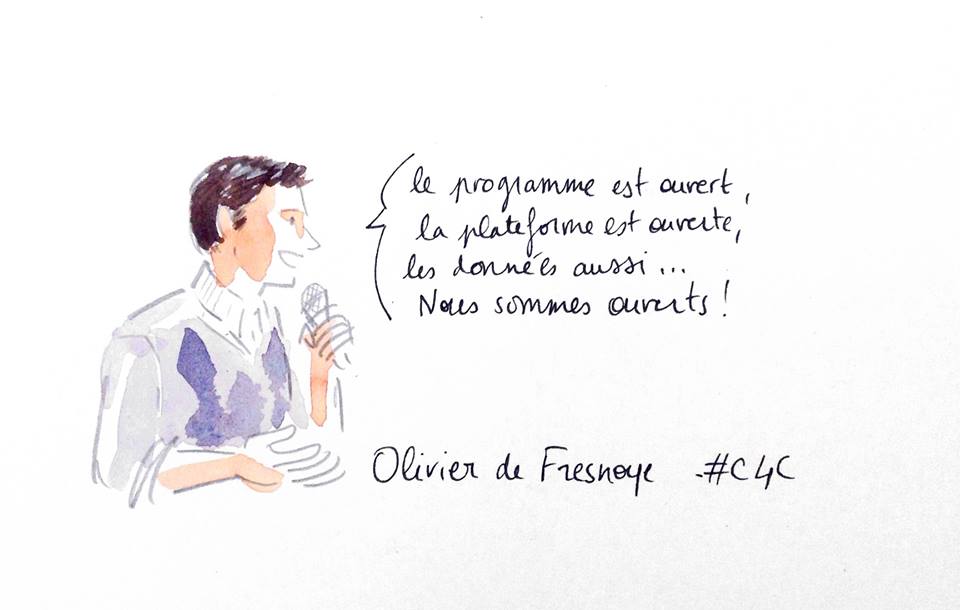 le programme est ouvert,
la plateforme est ouverte,
les données aussi...
Nous sommes ouverts !
Olivier de Fresnoye -#C4C